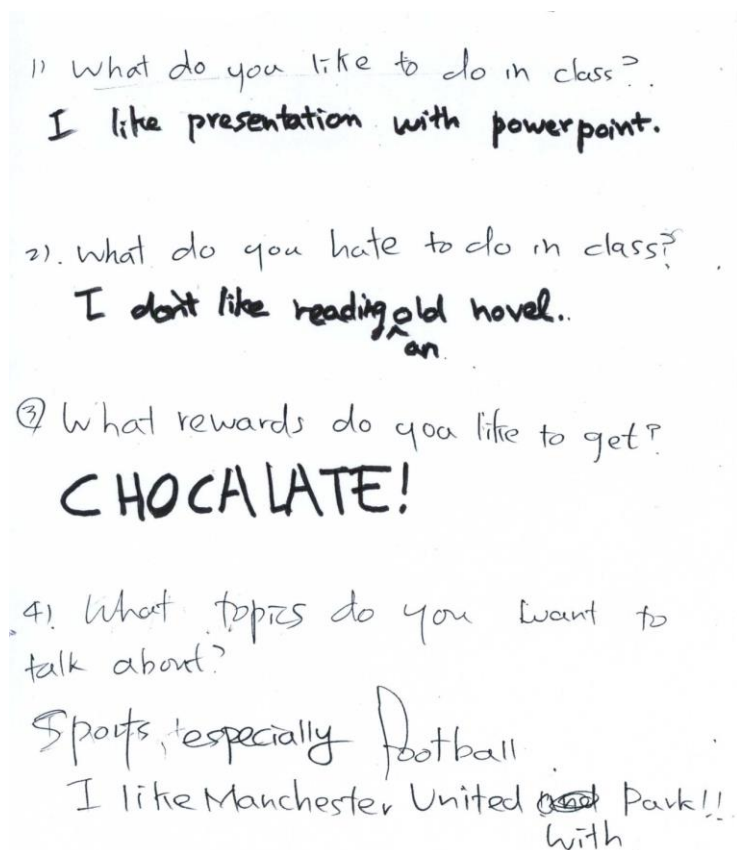 1) What do you like to do in class?
I like presentation with powerpoint.
2). What do you hate to do in class?
I don't like reading an old novel.
③ What rewards do you like to get?
CHOCALATE!
4) What topics do you want to
talk about?
Sports, especially football
I like Manchester United with Park!!